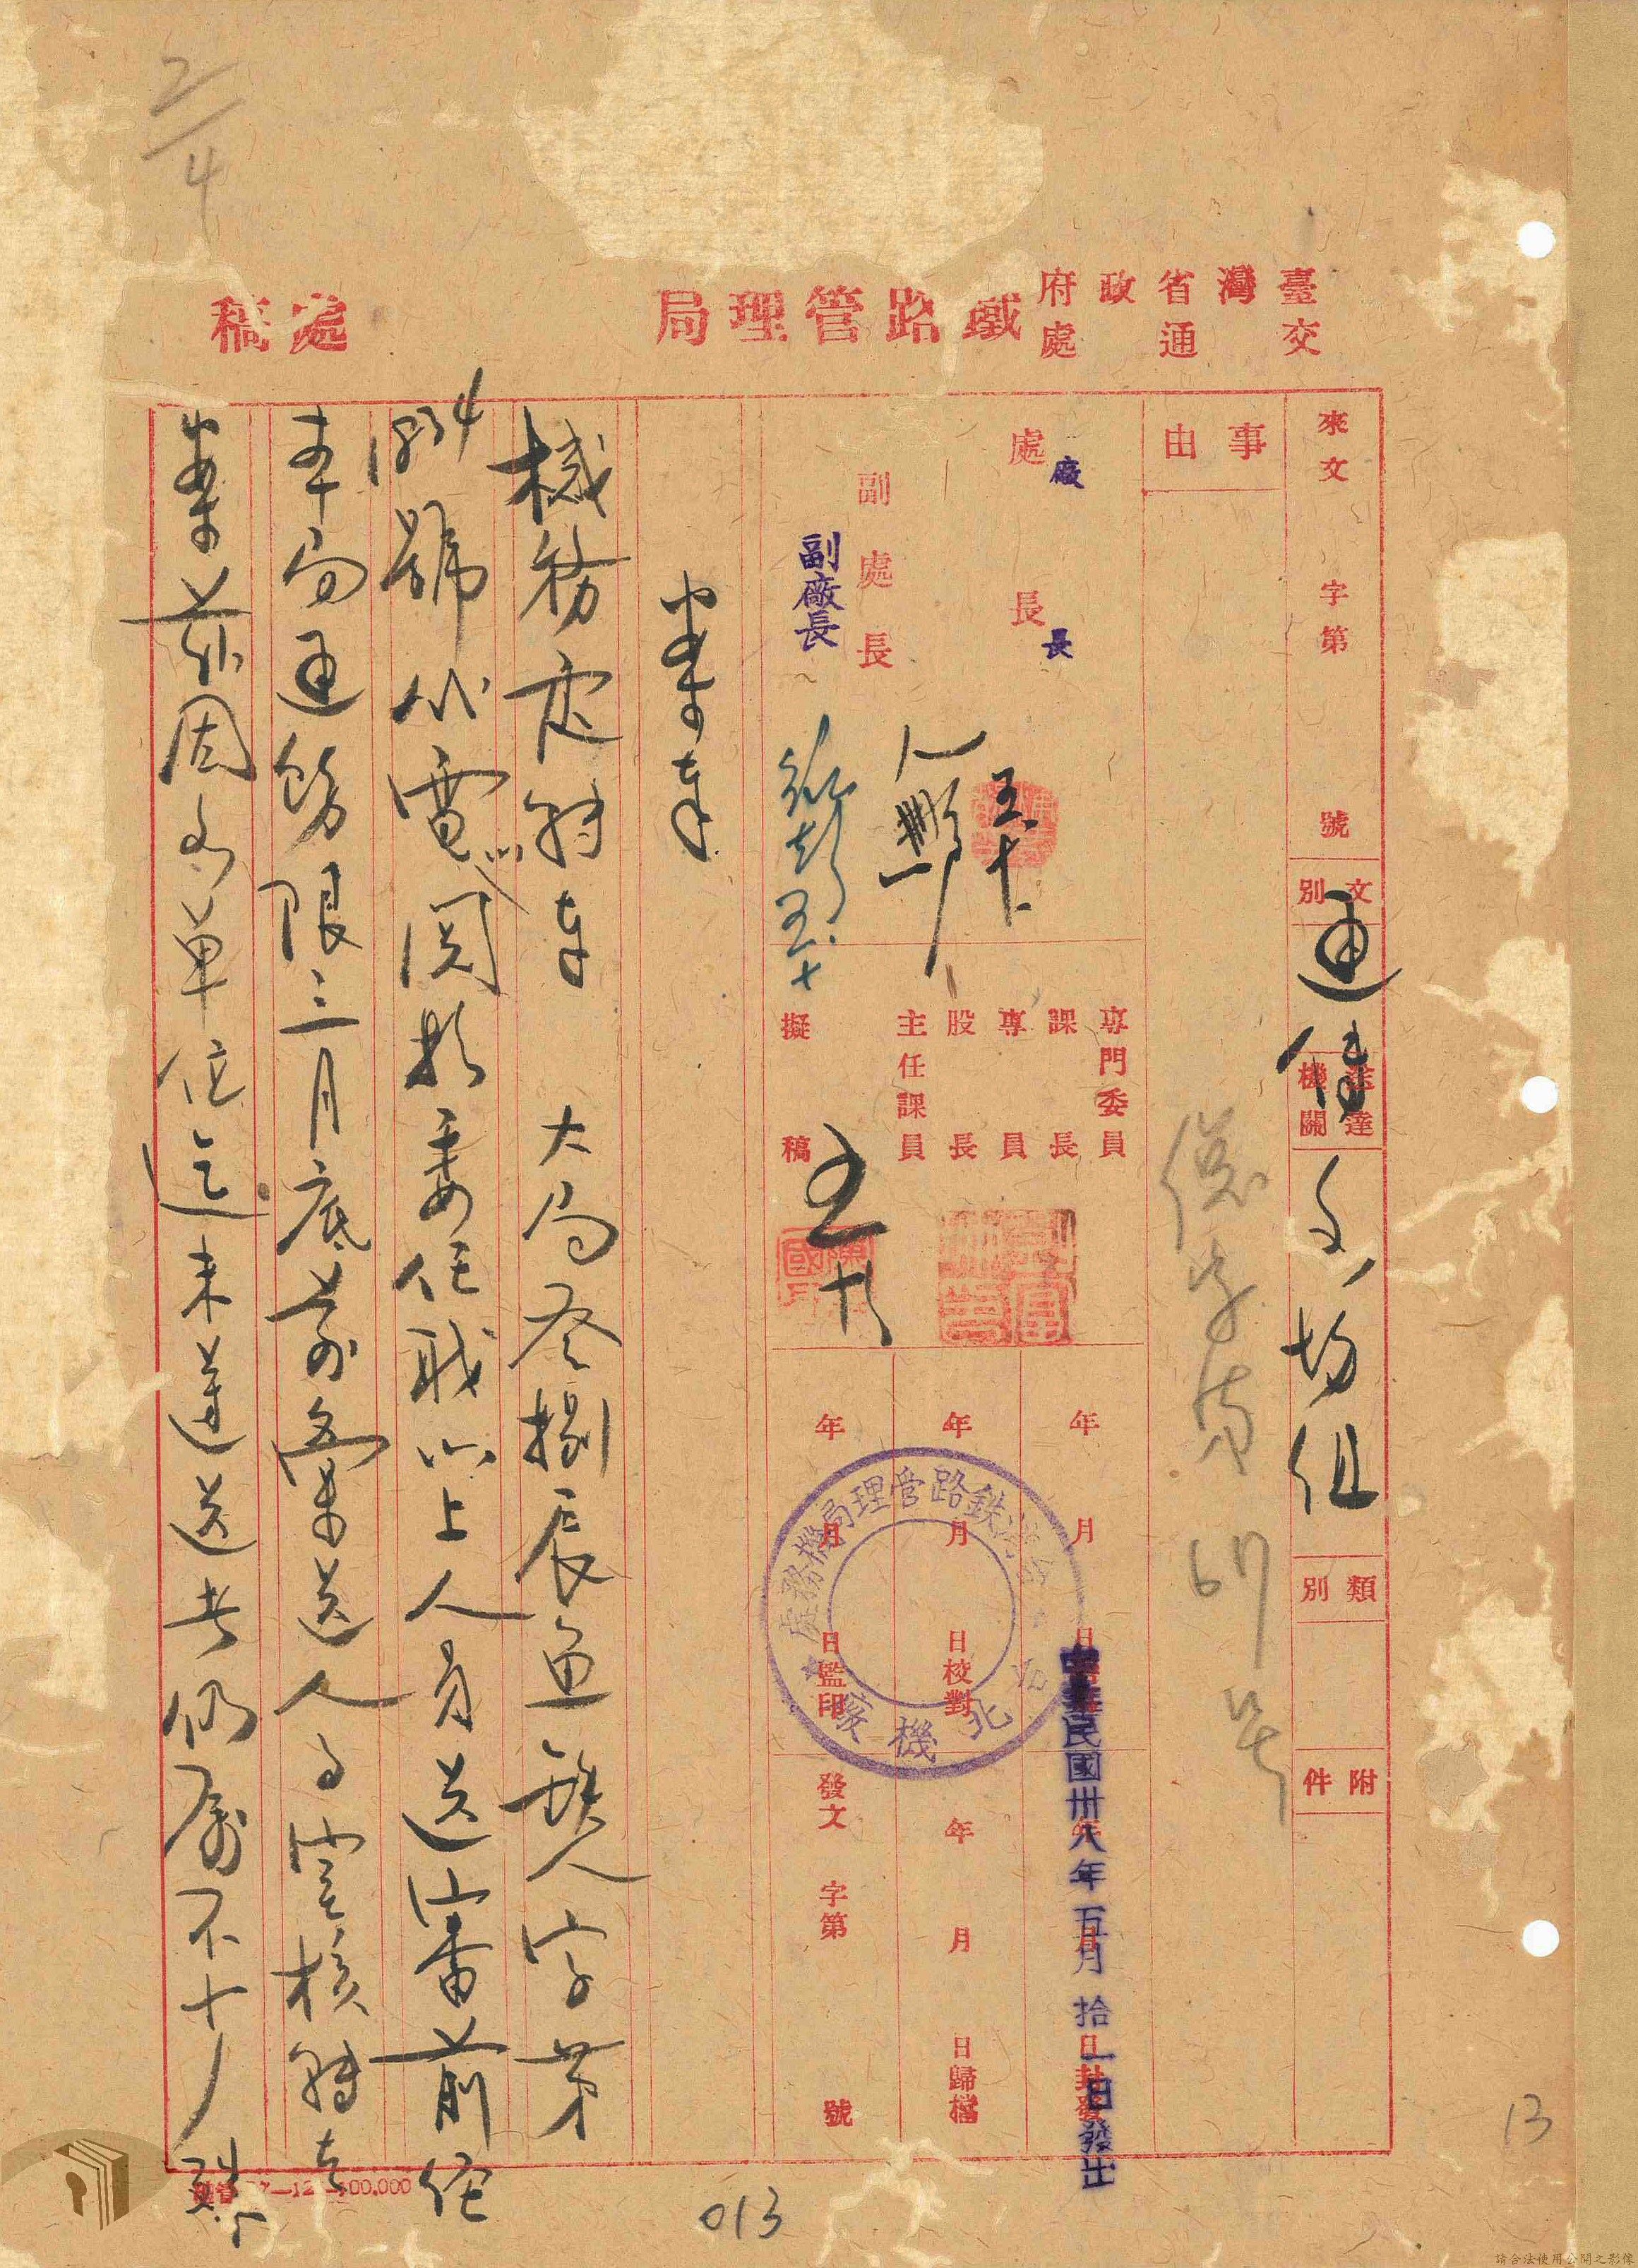 2/4
臺灣省政府
交通處
鐵路管理局
處稿
來文 字第 號
文別
通傳
送達機關
各場組
類別
附件
事由
總字第 611 号
處長
廠長
副處長
副廠長
五十
五十
專門委員
課長
專員
股長
主任課員
擬稿
五十
年 月 日
年 月 日校對
年 月 日監印
年 月 日封發
年 月 日歸檔
發文 字第 號
中華民國卅八年五月拾一日發出
鉄路管理局機務處
台北機廠
案奉
機務處轉奉 大局叁捌辰魚 人字第
1834號代電以關於委任職以上人員送審前經
本局通飭限三月底前彙送人事室核轉在
案茲因各單位迄未遵送者仍屬不少殊
37—12—100,000
013
13
請合法使用公開之影像